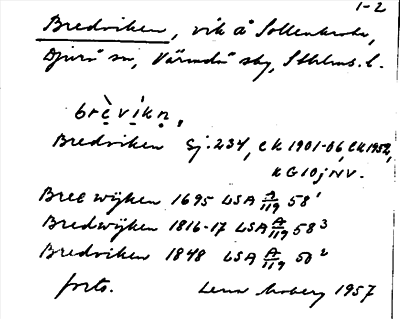 1-2
Bredviken, vik å Sollenkroka,
Djurö sn, Värmdö sky, Sthlms. l.
brèvíkṇ,
Bredviken Gj. 234, EK 1901-06, EK 1952,
KG 10j NV.
Bree wijken 1695 LSA A/119 58¹
Bredwijken 1816-17 LSA A/119 58³
Bredviken 1848 LSA A/119 50²
forts. Lena Moberg 1957